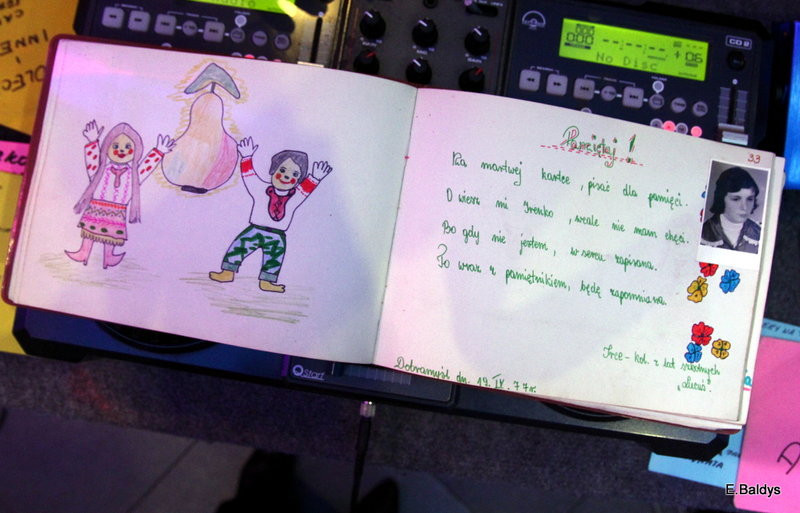 INNE
CD 2
No Disc
Pamiętaj!
33
Na martwej kartce, pisać dla pamięci.
O wierz mi Irenko, wcale nie mam chęci.
Bo gdy nie jestem, w sercu zapisana.
To wraz z pamiętnikiem, będę zapomniana.
Irce - kol. z lat szkolnych
"Lucuś".
Dobramyśl dn. 19. IX. 77r.
start
E.Baldys